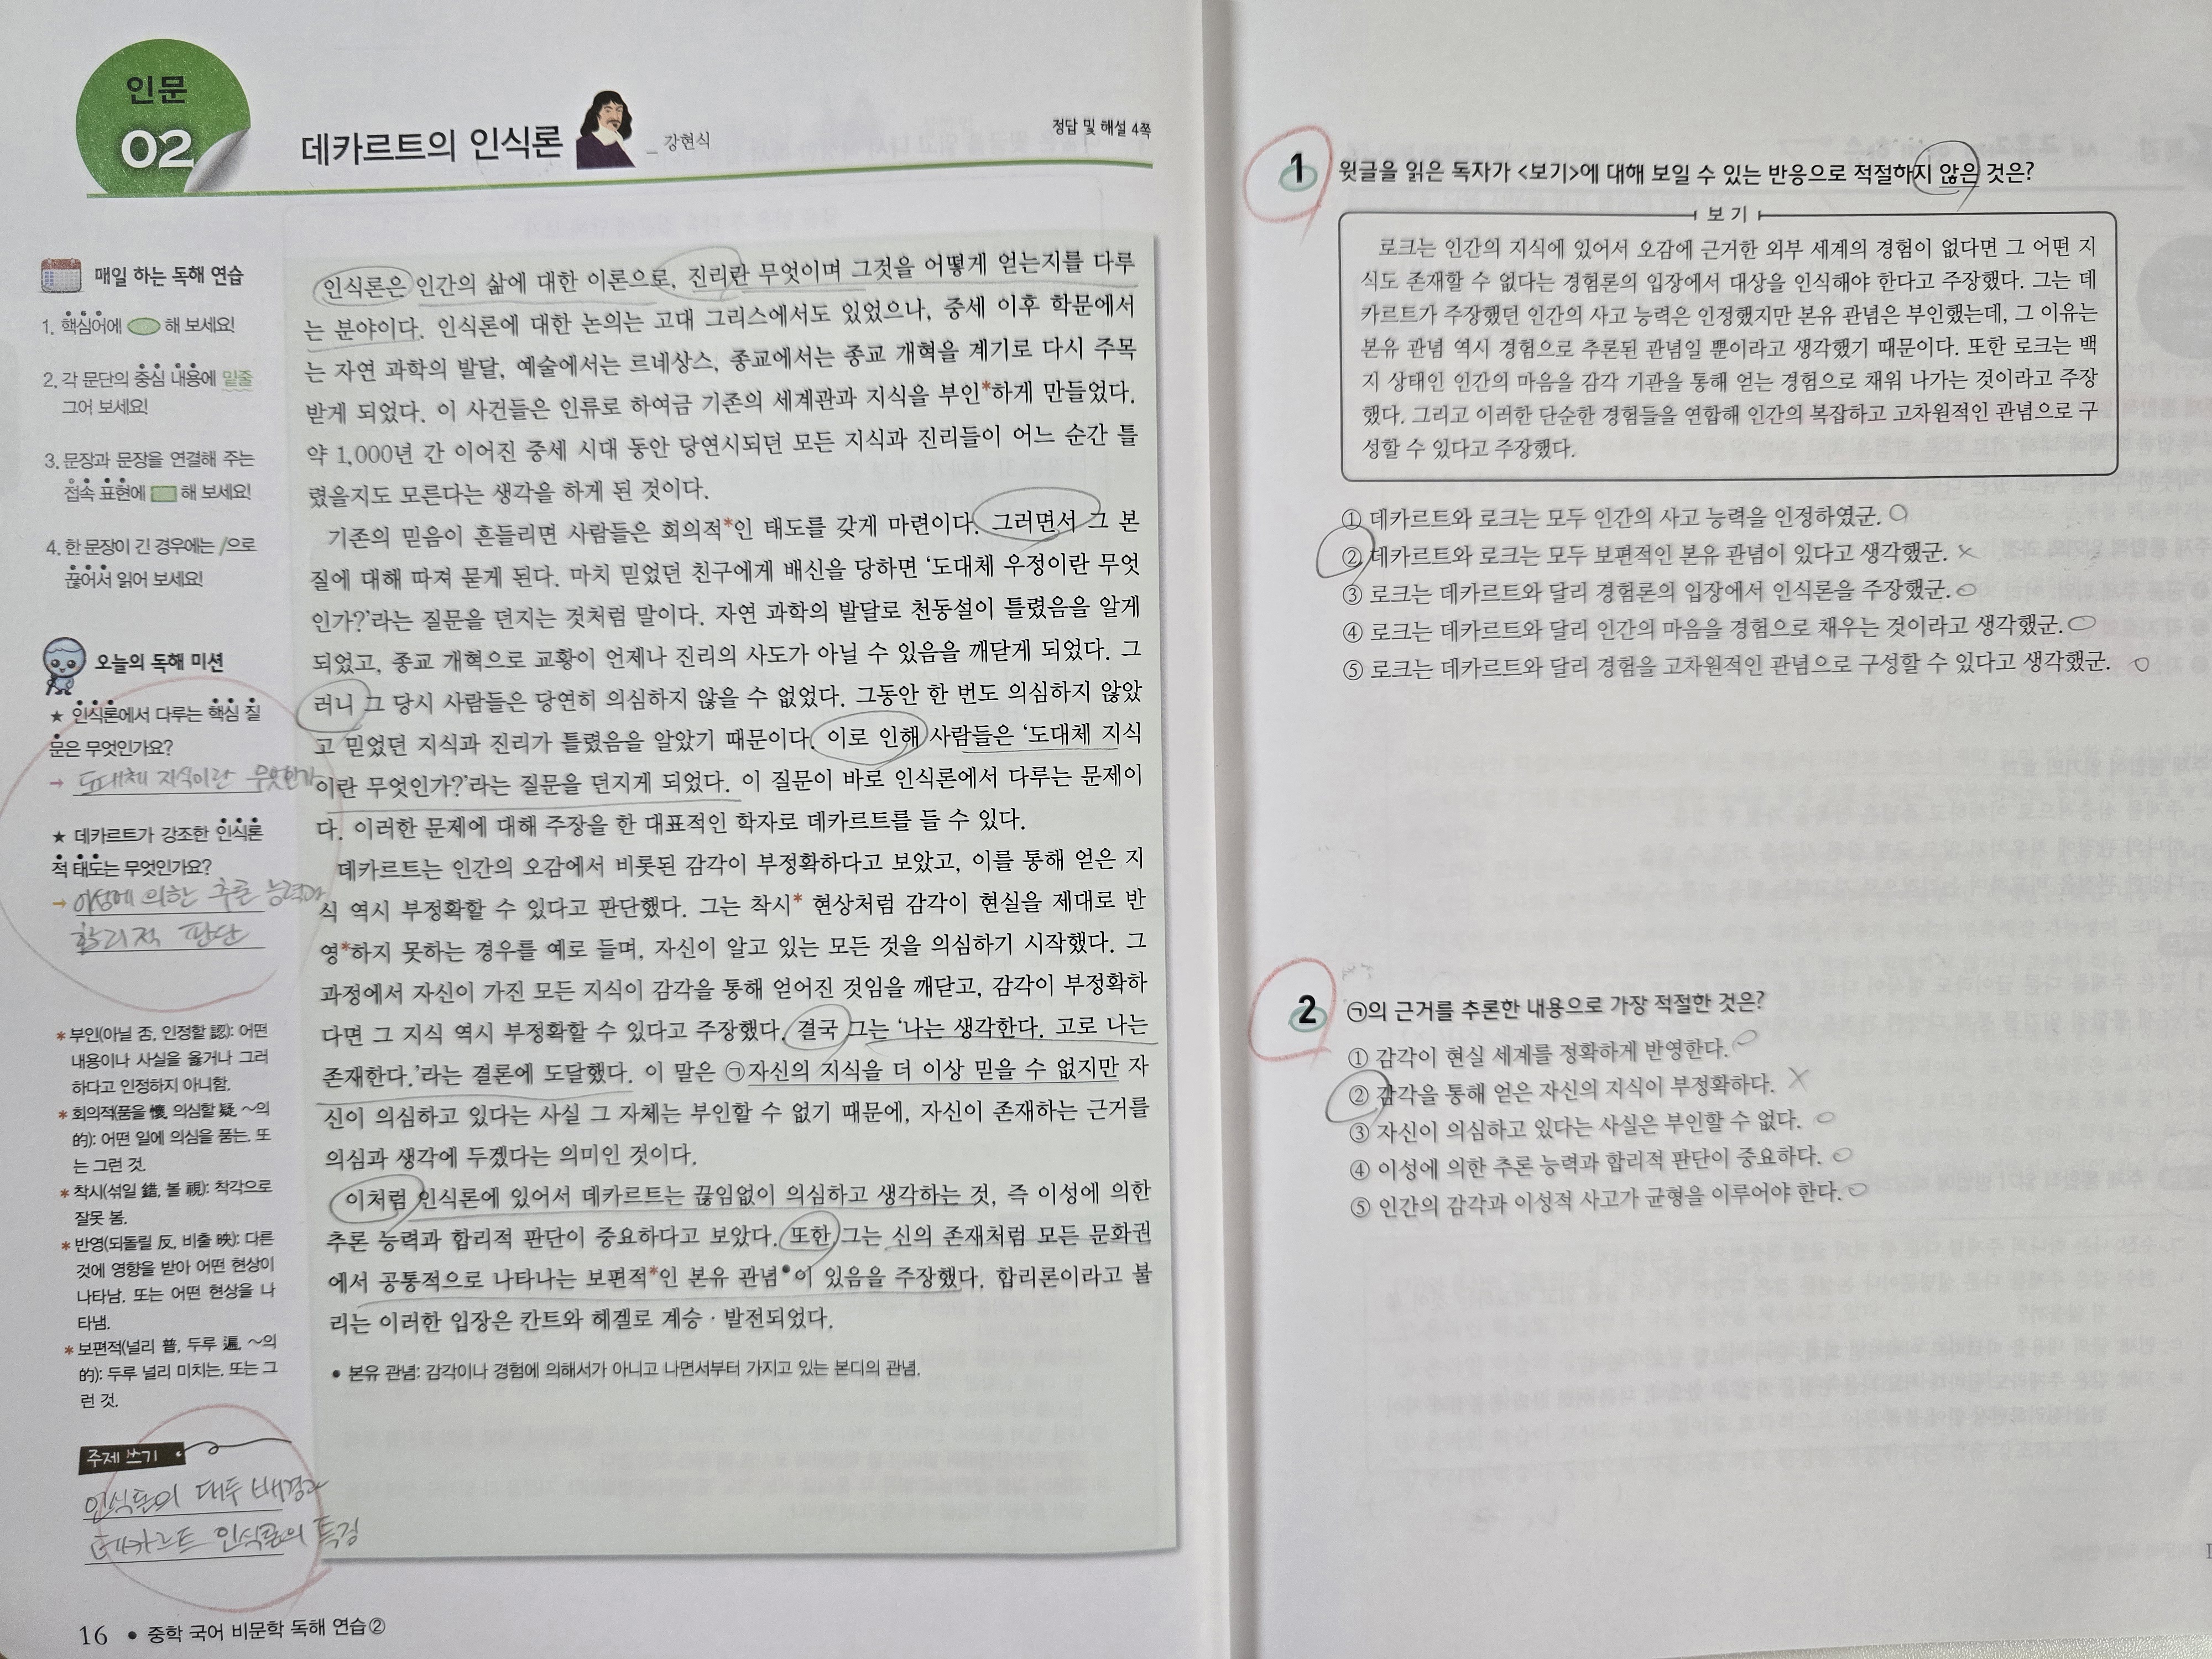 인문
02
데카르트의 인식론
_ 강현식
정답 및 해설 4쪽
매일 하는 독해 연습
1. 핵심어에 해 보세요!
2. 각 문단의 중심 내용에 밑줄
그어 보세요!
3. 문장과 문장을 연결해 주는
접속 표현에 해 보세요!
4. 한 문장이 긴 경우에는 /으로
끊어서 읽어 보세요!
오늘의 독해 미션
★ 인식론에서 다루는 핵심 질
문은 무엇인가요?
→ 도대체 지식이란 무엇인가
★ 데카르트가 강조한 인식론
적 태도는 무엇인가요?
→ 이성에 의한 추론 능력과
합리적 판단
* 부인(아닐 否, 인정할 認): 어떤
내용이나 사실을 옳거나 그러
하다고 인정하지 아니함.
* 회의적(품을 懷, 의심할 疑, ~의
的): 어떤 일에 의심을 품는. 또
는 그런 것.
* 착시(섞일 錯, 볼 視): 착각으로
잘못 봄.
* 반영(되돌릴 反, 비출 映): 다른
것에 영향을 받아 어떤 현상이
나타남. 또는 어떤 현상을 나
타냄.
* 보편적(널리 普, 두루 遍, ~의
的): 두루 널리 미치는. 또는 그
런 것.
주제 쓰기
인식론의 대두 배경과
데카르트 인식론의 특징
인식론은 인간의 삶에 대한 이론으로, 진리란 무엇이며 그것을 어떻게 얻는지를 다루
는 분야이다. 인식론에 대한 논의는 고대 그리스에서도 있었으나, 중세 이후 학문에서
는 자연 과학의 발달, 예술에서는 르네상스, 종교에서는 종교 개혁을 계기로 다시 주목
받게 되었다. 이 사건들은 인류로 하여금 기존의 세계관과 지식을 부인*하게 만들었다.
약 1,000년 간 이어진 중세 시대 동안 당연시되던 모든 지식과 진리들이 어느 순간 틀
렸을지도 모른다는 생각을 하게 된 것이다.
기존의 믿음이 흔들리면 사람들은 회의적*인 태도를 갖게 마련이다. 그러면서 그 본
질에 대해 따져 묻게 된다. 마치 믿었던 친구에게 배신을 당하면 ‘도대체 우정이란 무엇
인가?’라는 질문을 던지는 것처럼 말이다. 자연 과학의 발달로 천동설이 틀렸음을 알게
되었고, 종교 개혁으로 교황이 언제나 진리의 사도가 아닐 수 있음을 깨닫게 되었다. 그
러니 그 당시 사람들은 당연히 의심하지 않을 수 없었다. 그동안 한 번도 의심하지 않았
고 믿었던 지식과 진리가 틀렸음을 알았기 때문이다. 이로 인해 사람들은 ‘도대체 지식
이란 무엇인가?’라는 질문을 던지게 되었다. 이 질문이 바로 인식론에서 다루는 문제이
다. 이러한 문제에 대해 주장을 한 대표적인 학자로 데카르트를 들 수 있다.
데카르트는 인간의 오감에서 비롯된 감각이 부정확하다고 보았고, 이를 통해 얻은 지
식 역시 부정확할 수 있다고 판단했다. 그는 착시* 현상처럼 감각이 현실을 제대로 반
영*하지 못하는 경우를 예로 들며, 자신이 알고 있는 모든 것을 의심하기 시작했다. 그
과정에서 자신이 가진 모든 지식이 감각을 통해 얻어진 것임을 깨닫고, 감각이 부정확하
다면 그 지식 역시 부정확할 수 있다고 주장했다. 결국 그는 ‘나는 생각한다. 고로 나는
존재한다.’라는 결론에 도달했다. 이 말은 ㉠자신의 지식을 더 이상 믿을 수 없지만 자
신이 의심하고 있다는 사실 그 자체는 부인할 수 없기 때문에, 자신이 존재하는 근거를
의심과 생각에 두겠다는 의미인 것이다.
이처럼 인식론에 있어서 데카르트는 끊임없이 의심하고 생각하는 것, 즉 이성에 의한
추론 능력과 합리적 판단이 중요하다고 보았다. 또한 그는 신의 존재처럼 모든 문화권
에서 공통적으로 나타나는 보편적*인 본유 관념•이 있음을 주장했다. 합리론이라고 불
리는 이러한 입장은 칸트와 헤겔로 계승·발전되었다.
• 본유 관념: 감각이나 경험에 의해서가 아니고 나면서부터 가지고 있는 본디의 관념.
16 • 중학 국어 비문학 독해 연습②
1 윗글을 읽은 독자가 <보기>에 대해 보일 수 있는 반응으로 적절하지 않은 것은?
보기
로크는 인간의 지식에 있어서 오감에 근거한 외부 세계의 경험이 없다면 그 어떤 지
식도 존재할 수 없다는 경험론의 입장에서 대상을 인식해야 한다고 주장했다. 그는 데
카르트가 주장했던 인간의 사고 능력은 인정했지만 본유 관념은 부인했는데, 그 이유는
본유 관념 역시 경험으로 추론된 관념일 뿐이라고 생각했기 때문이다. 또한 로크는 백
지 상태인 인간의 마음을 감각 기관을 통해 얻는 경험으로 채워 나가는 것이라고 주장
했다. 그리고 이러한 단순한 경험들을 연합해 인간의 복잡하고 고차원적인 관념으로 구
성할 수 있다고 주장했다.
① 데카르트와 로크는 모두 인간의 사고 능력을 인정하였군. ○
② 데카르트와 로크는 모두 보편적인 본유 관념이 있다고 생각했군. ×
③ 로크는 데카르트와 달리 경험론의 입장에서 인식론을 주장했군. ○
④ 로크는 데카르트와 달리 인간의 마음을 경험으로 채우는 것이라고 생각했군. ○
⑤ 로크는 데카르트와 달리 경험을 고차원적인 관념으로 구성할 수 있다고 생각했군. ○
2 ㉠의 근거를 추론한 내용으로 가장 적절한 것은?
① 감각이 현실 세계를 정확하게 반영한다. ○
② 감각을 통해 얻은 자신의 지식이 부정확하다. ×
③ 자신이 의심하고 있다는 사실은 부인할 수 없다. ○
④ 이성에 의한 추론 능력과 합리적 판단이 중요하다. ○
⑤ 인간의 감각과 이성적 사고가 균형을 이루어야 한다. ○